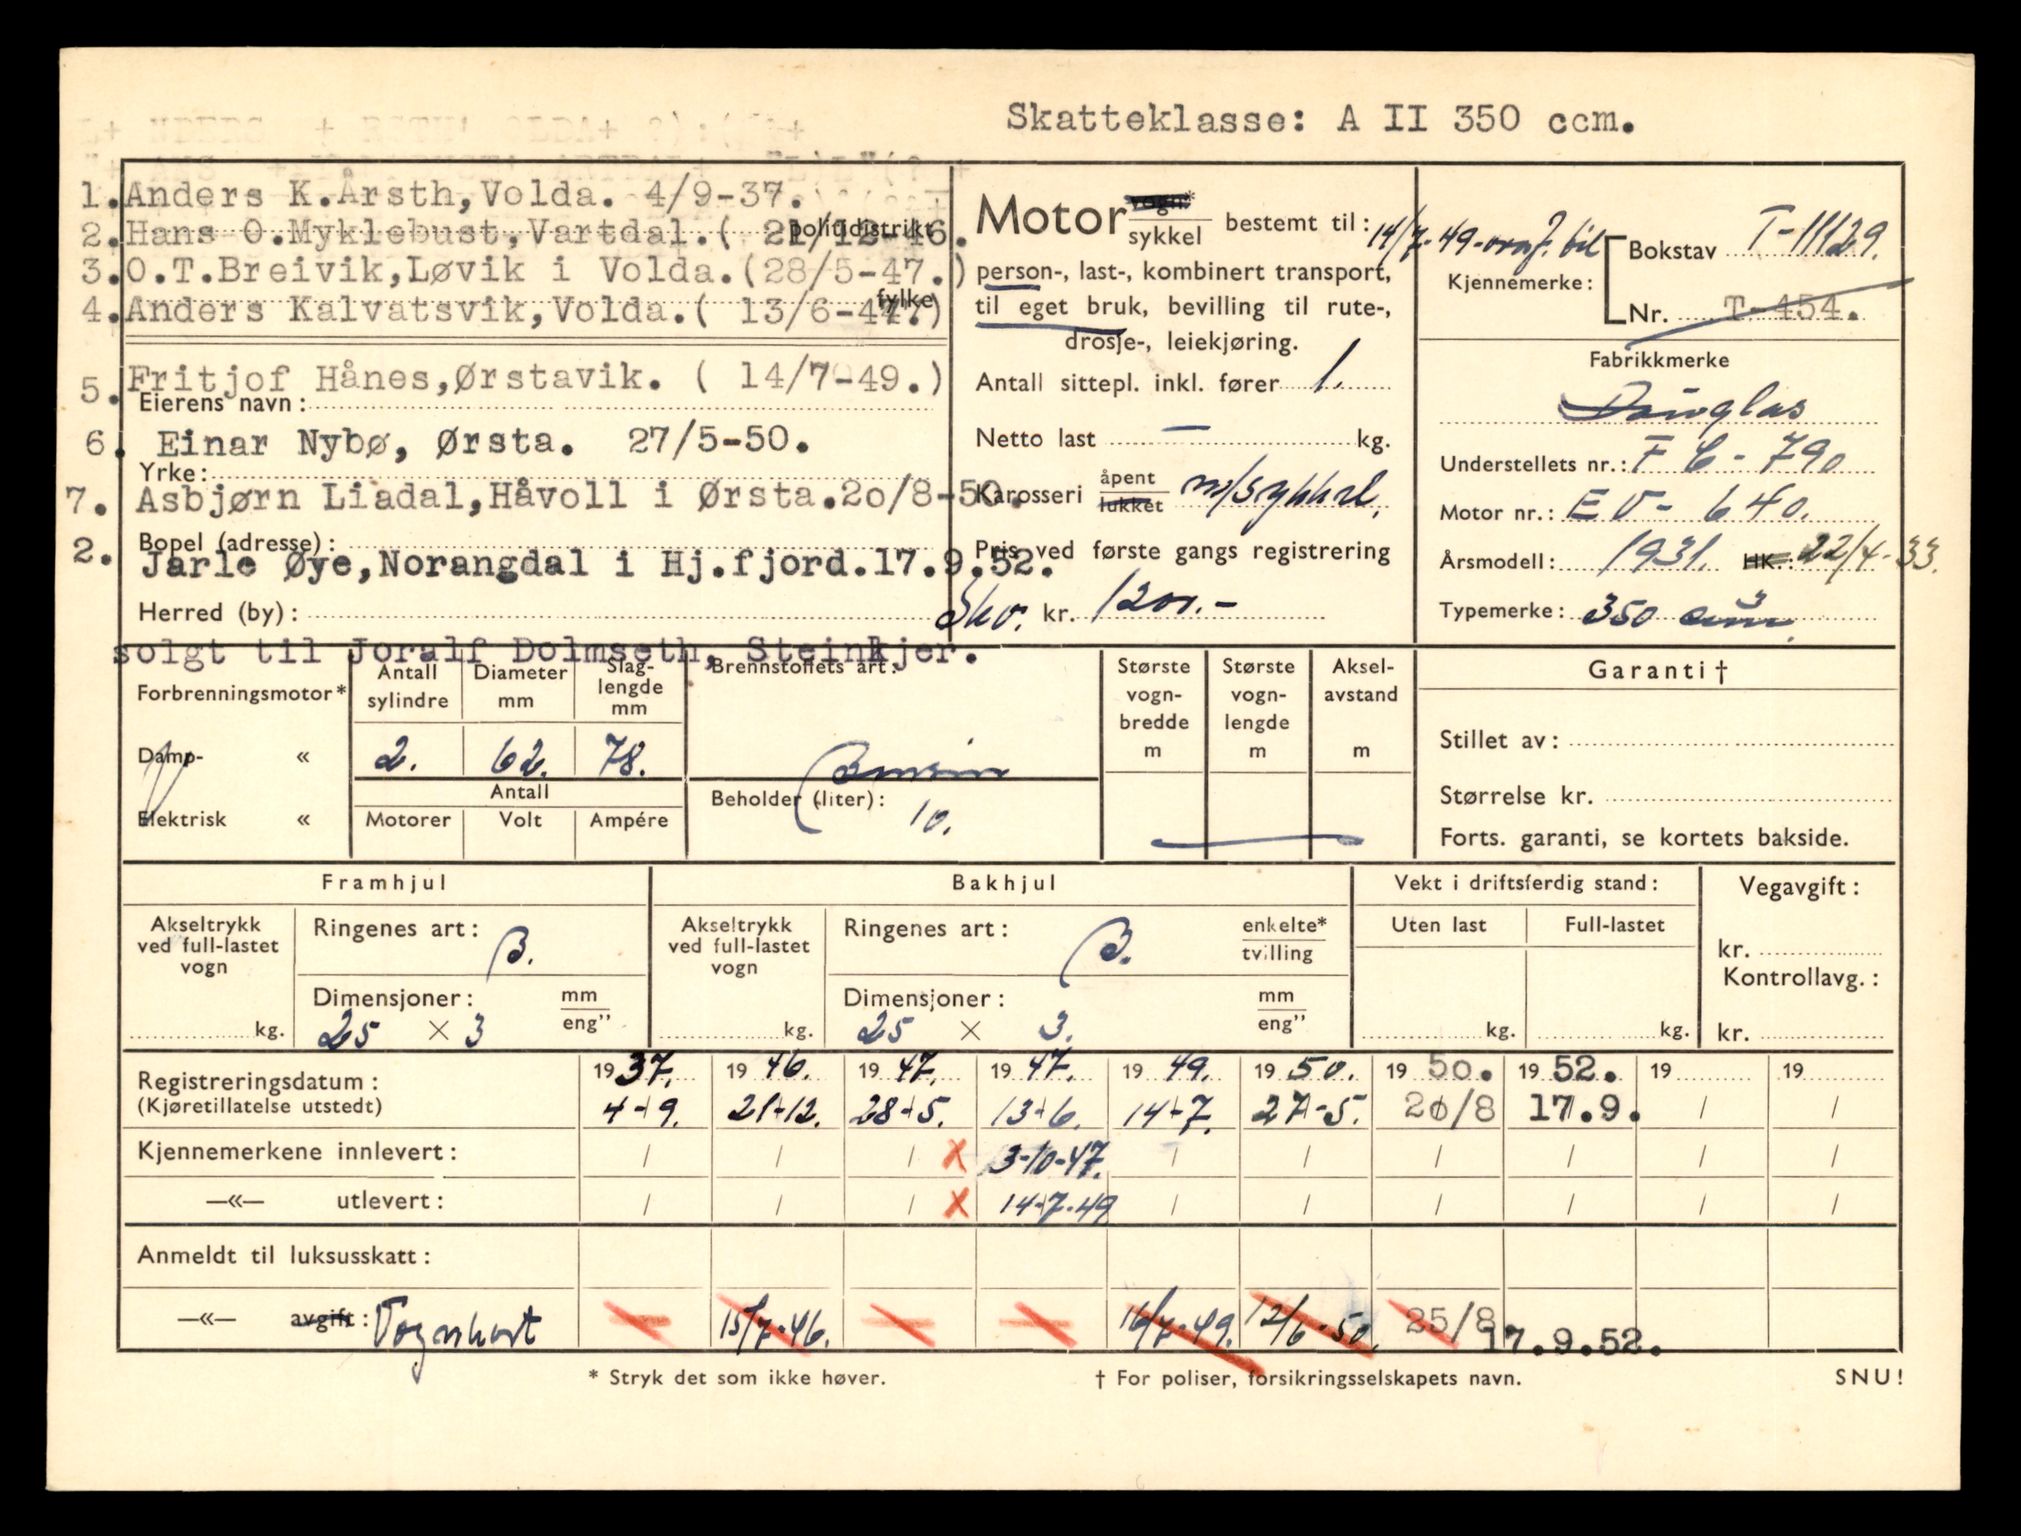 Skatteklasse: A II 350 ccm.
1. Anders K.Årsth,Volda. 4/9-37.
politidistrikt
2. Hans O.Myklebust,Vartdal.( 21/12-46.
3. O.T.Breivik,Løvik i Volda.(28/5-47.)
fylke
4. Anders Kalvatsvik,Volda.( 13/6-47.)
5. Fritjof Hånes,Ørstavik. ( 14/7-49.)
Eierens navn:
6. Einar Nybø, Ørsta. 27/5-50.
Yrke:
7. Asbjørn Liadal,Håvoll i Ørsta.20/8-50.
Bopel (adresse):
2. Jarle Øye,Norangdal i Hj.fjord.17.9.52.
Herred (by):
solgt til Joralf Dolmseth, Steinkjer.
Motor vogn*
sykkel bestemt til:
person-, last-, kombinert transport,
til eget bruk, bevilling til rute-,
drosje-, leiekjøring.
Antall sittepl. inkl. fører 1.
Netto last — kg.
Karosseri åpent
lukket m/sykkel.
Pris ved første gangs registrering
Skv. kr. 1200.-
14/7-49- bil
Kjennemerke:
Bokstav T-11129.
Nr. T-454.
Fabrikkmerke
Douglas
Understellets nr.: F C - 790
Motor nr.: EV- 640.
Årsmodell: 1931. HK.: 22/4-33.
Typemerke: 350
Forbrenningsmotor*
Damp- «
Elektrisk «
Antall sylindre
Diameter mm
Slag-lengde mm
2. 62. 78.
Antall
Motorer Volt Ampére
Brennstoffets art:
Bensin
Beholder (liter): 10.
Største vogn-bredde m
Største vogn-lengde m
Aksel-avstand m
Garanti †
Stillet av:
Størrelse kr.
Forts. garanti, se kortets bakside.
Framhjul
Akseltrykk ved full-lastet vogn
kg.
Ringenes art: B.
Dimensjoner: mm
eng”
25 × 3
Bakhjul
Akseltrykk ved full-lastet vogn
kg.
Ringenes art: B. enkelte*
tvilling
Dimensjoner: mm
eng”
25 × 3.
Vekt i driftsferdig stand:
Uten last Full-lastet
kg. kg.
Vegavgift:
kr.
Kontrollavg.:
kr.
Registreringsdatum: 1937. 1946. 1947. 1947. 1949. 1950. 1950. 1952. 19 19
(Kjøretillatelse utstedt) 4-9. 21-12. 28-5. 13-6. 14-7. 27-5. 20/8 17.9. / /
Kjennemerkene innlevert: / / / X 13-10-47. / / / / / /
—«— utlevert: / / / X 14-7-49 / / / / / /
Anmeldt til luksusskatt:
—«— avgift: Vognkort 15/7-46. 16/7-49. 12/6-50. 25/8 17.9.52.
* Stryk det som ikke høver.
† For poliser, forsikringsselskapets navn.
SNU!